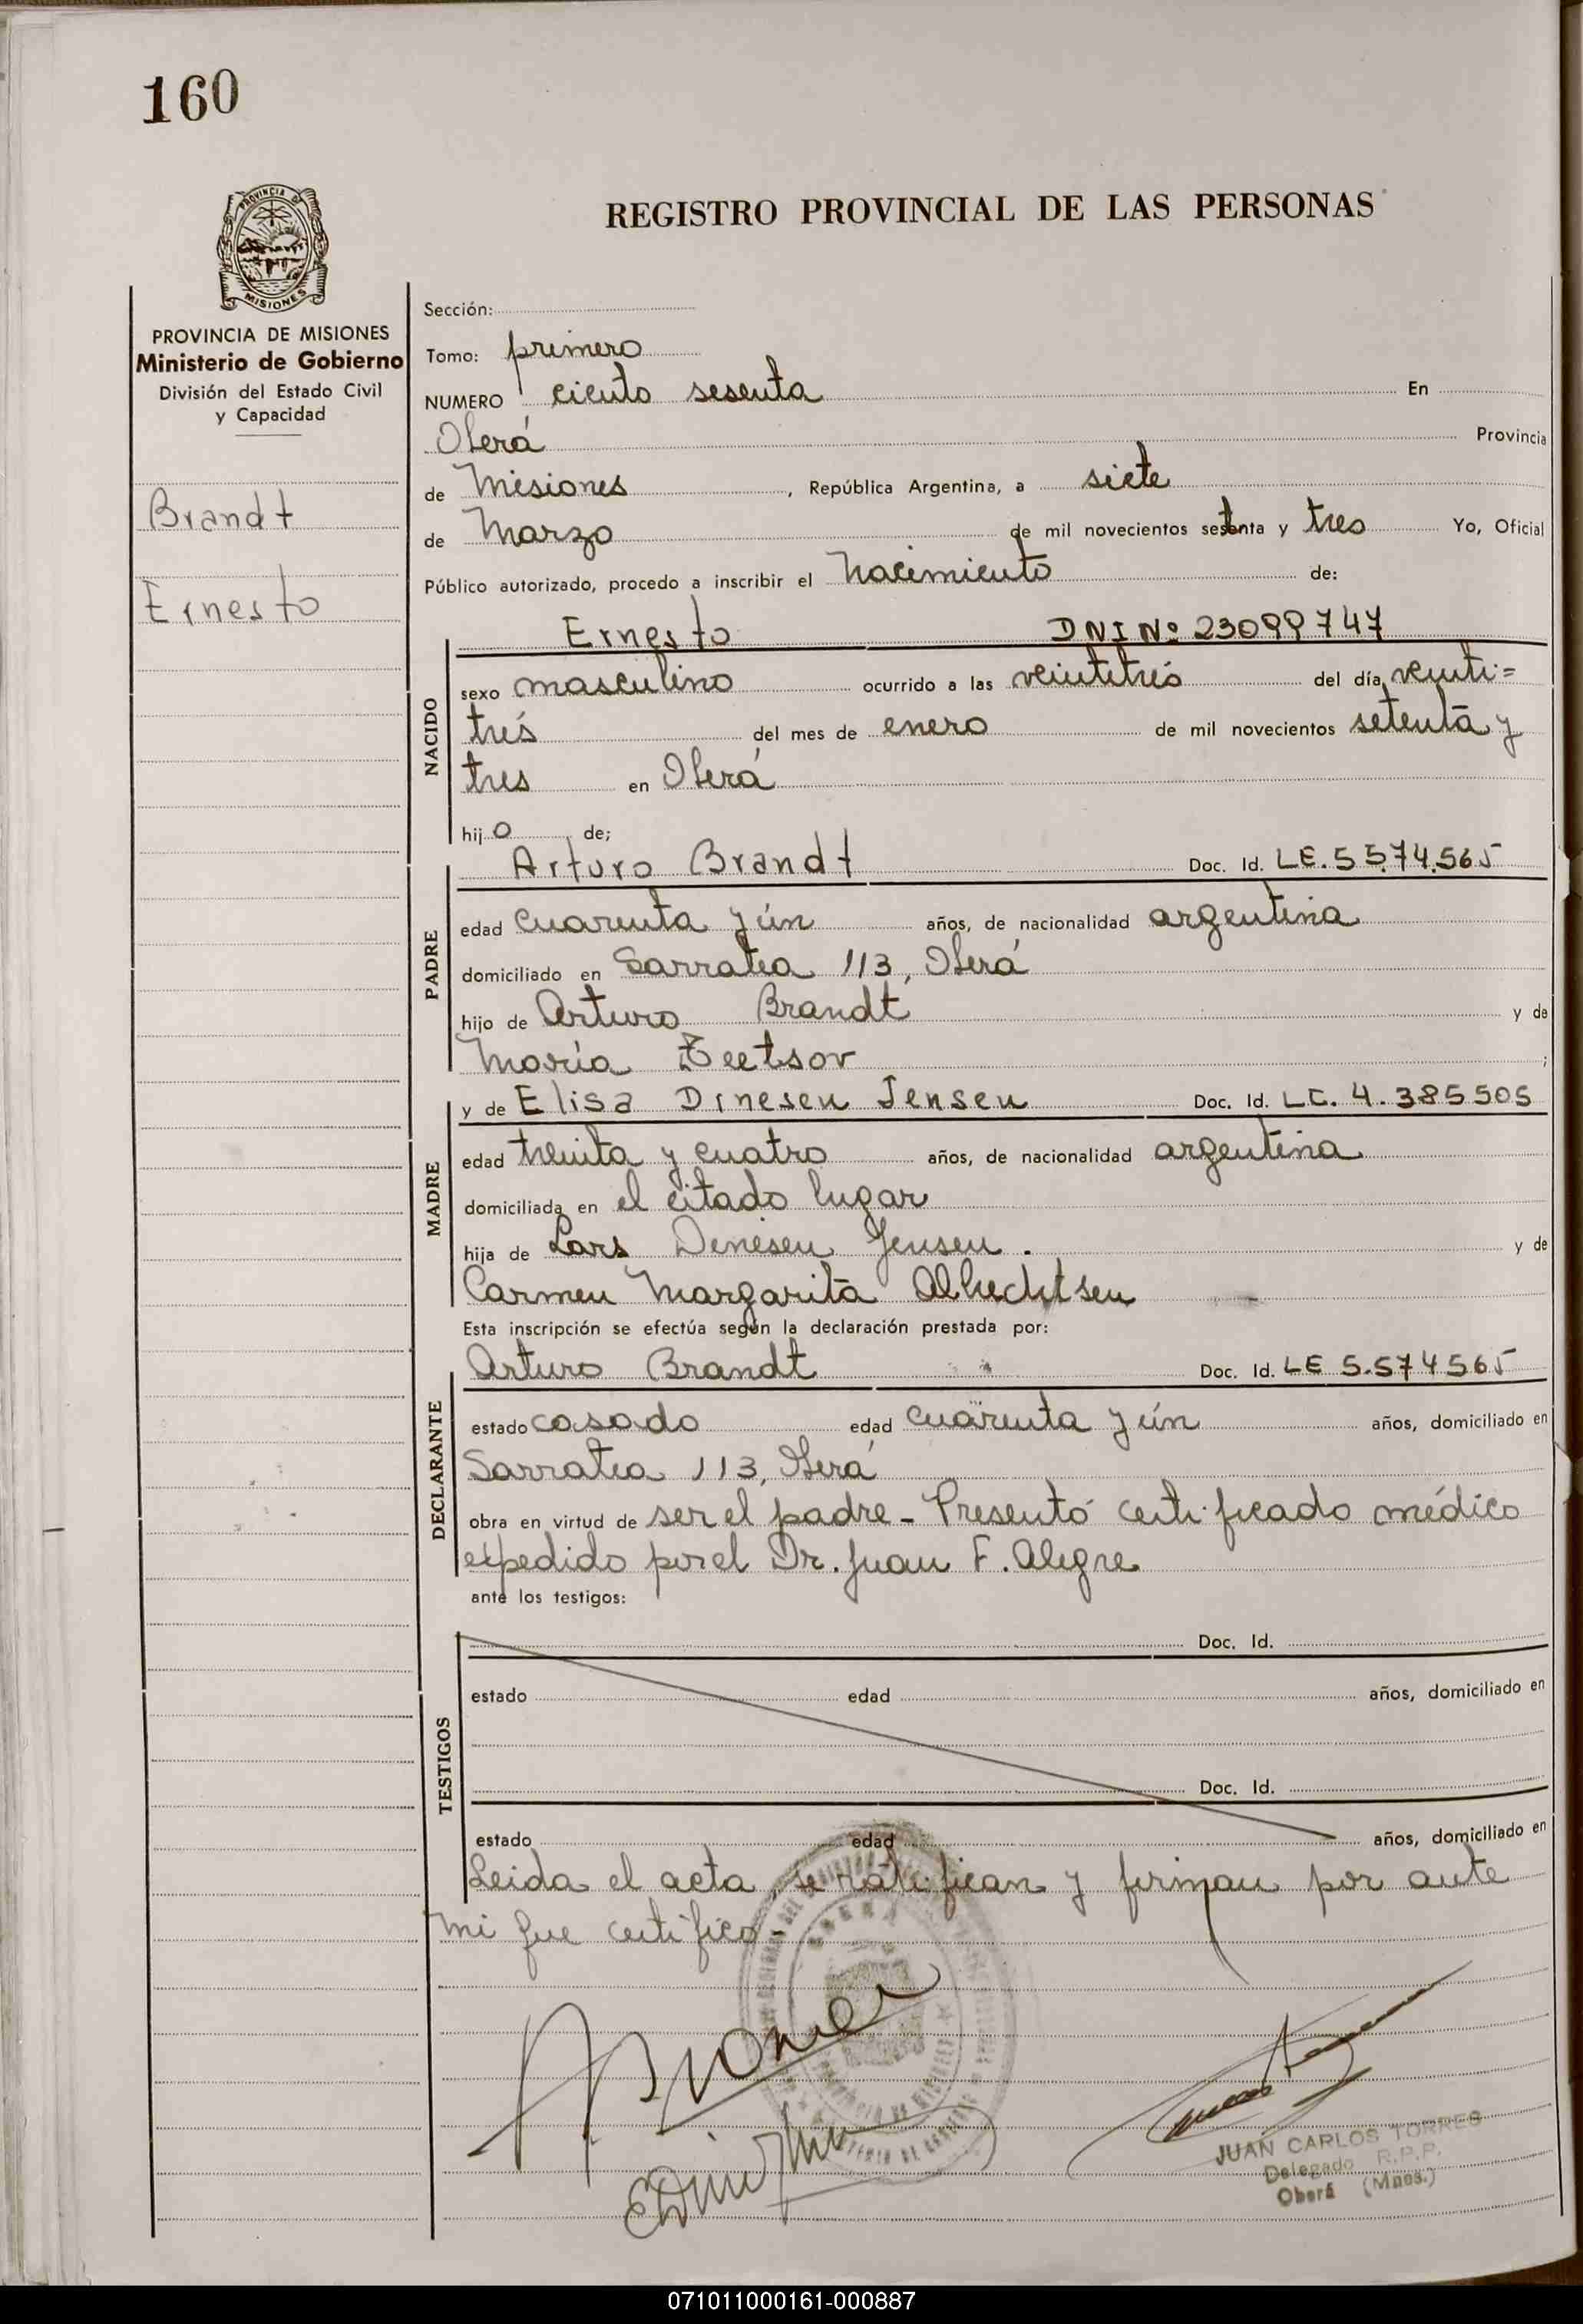 160
REGISTRO PROVINCIAL DE LAS PERSONAS
PROVINCIA DE MISIONES
Ministerio de Gobierno
División del Estado Civil
y Capacidad
Brandt
Ernesto
Sección:
Tomo: primero
NUMERO ciento sesenta En
Oberá Provincia
de Misiones , República Argentina, a siete
de Marzo de mil novecientos setenta y tres Yo, Oficial
Público autorizado, procedo a inscribir el Nacimiento de:
Ernesto DNI Nº 23099747
NACIDO
sexo masculino ocurrido a las veintitrés del día veinti=
trés del mes de enero de mil novecientos setenta y
tres en Oberá
hijo de;
Arturo Brandt Doc. Id. LE. 5.574.565
PADRE
edad cuarenta y ún años, de nacionalidad argentina
domiciliado en Sarratea 113, Oberá
hijo de Arturo Brandt y de
María Beetsov ;
y de Elisa Dinesen Jensen Doc. Id. LC. 4.385505
MADRE
edad treinta y cuatro años, de nacionalidad argentina
domiciliada en el citado lugar
hija de Lars Dinesen Jensen. y de
Carmen Margarita Albechtsen
Esta inscripción se efectúa según la declaración prestada por:
Arturo Brandt Doc. Id. LE 5.574565
DECLARANTE
estado casado edad cuarenta y ún años, domiciliado en
Sarratea 113, Oberá
obra en virtud de ser el padre - Presentó certificado médico
expedido por el Dr. Juan F. Alegre
ante los testigos:
TESTIGOS
Doc. Id.
estado edad años, domiciliado en
Doc. Id.
estado edad años, domiciliado en
Leida el acta, se ratifican y firman por ante
mi que certifico-
JUAN CARLOS TORRES
Delegado R.P.P.
Oberá (Mnes.)
071011000161-000887